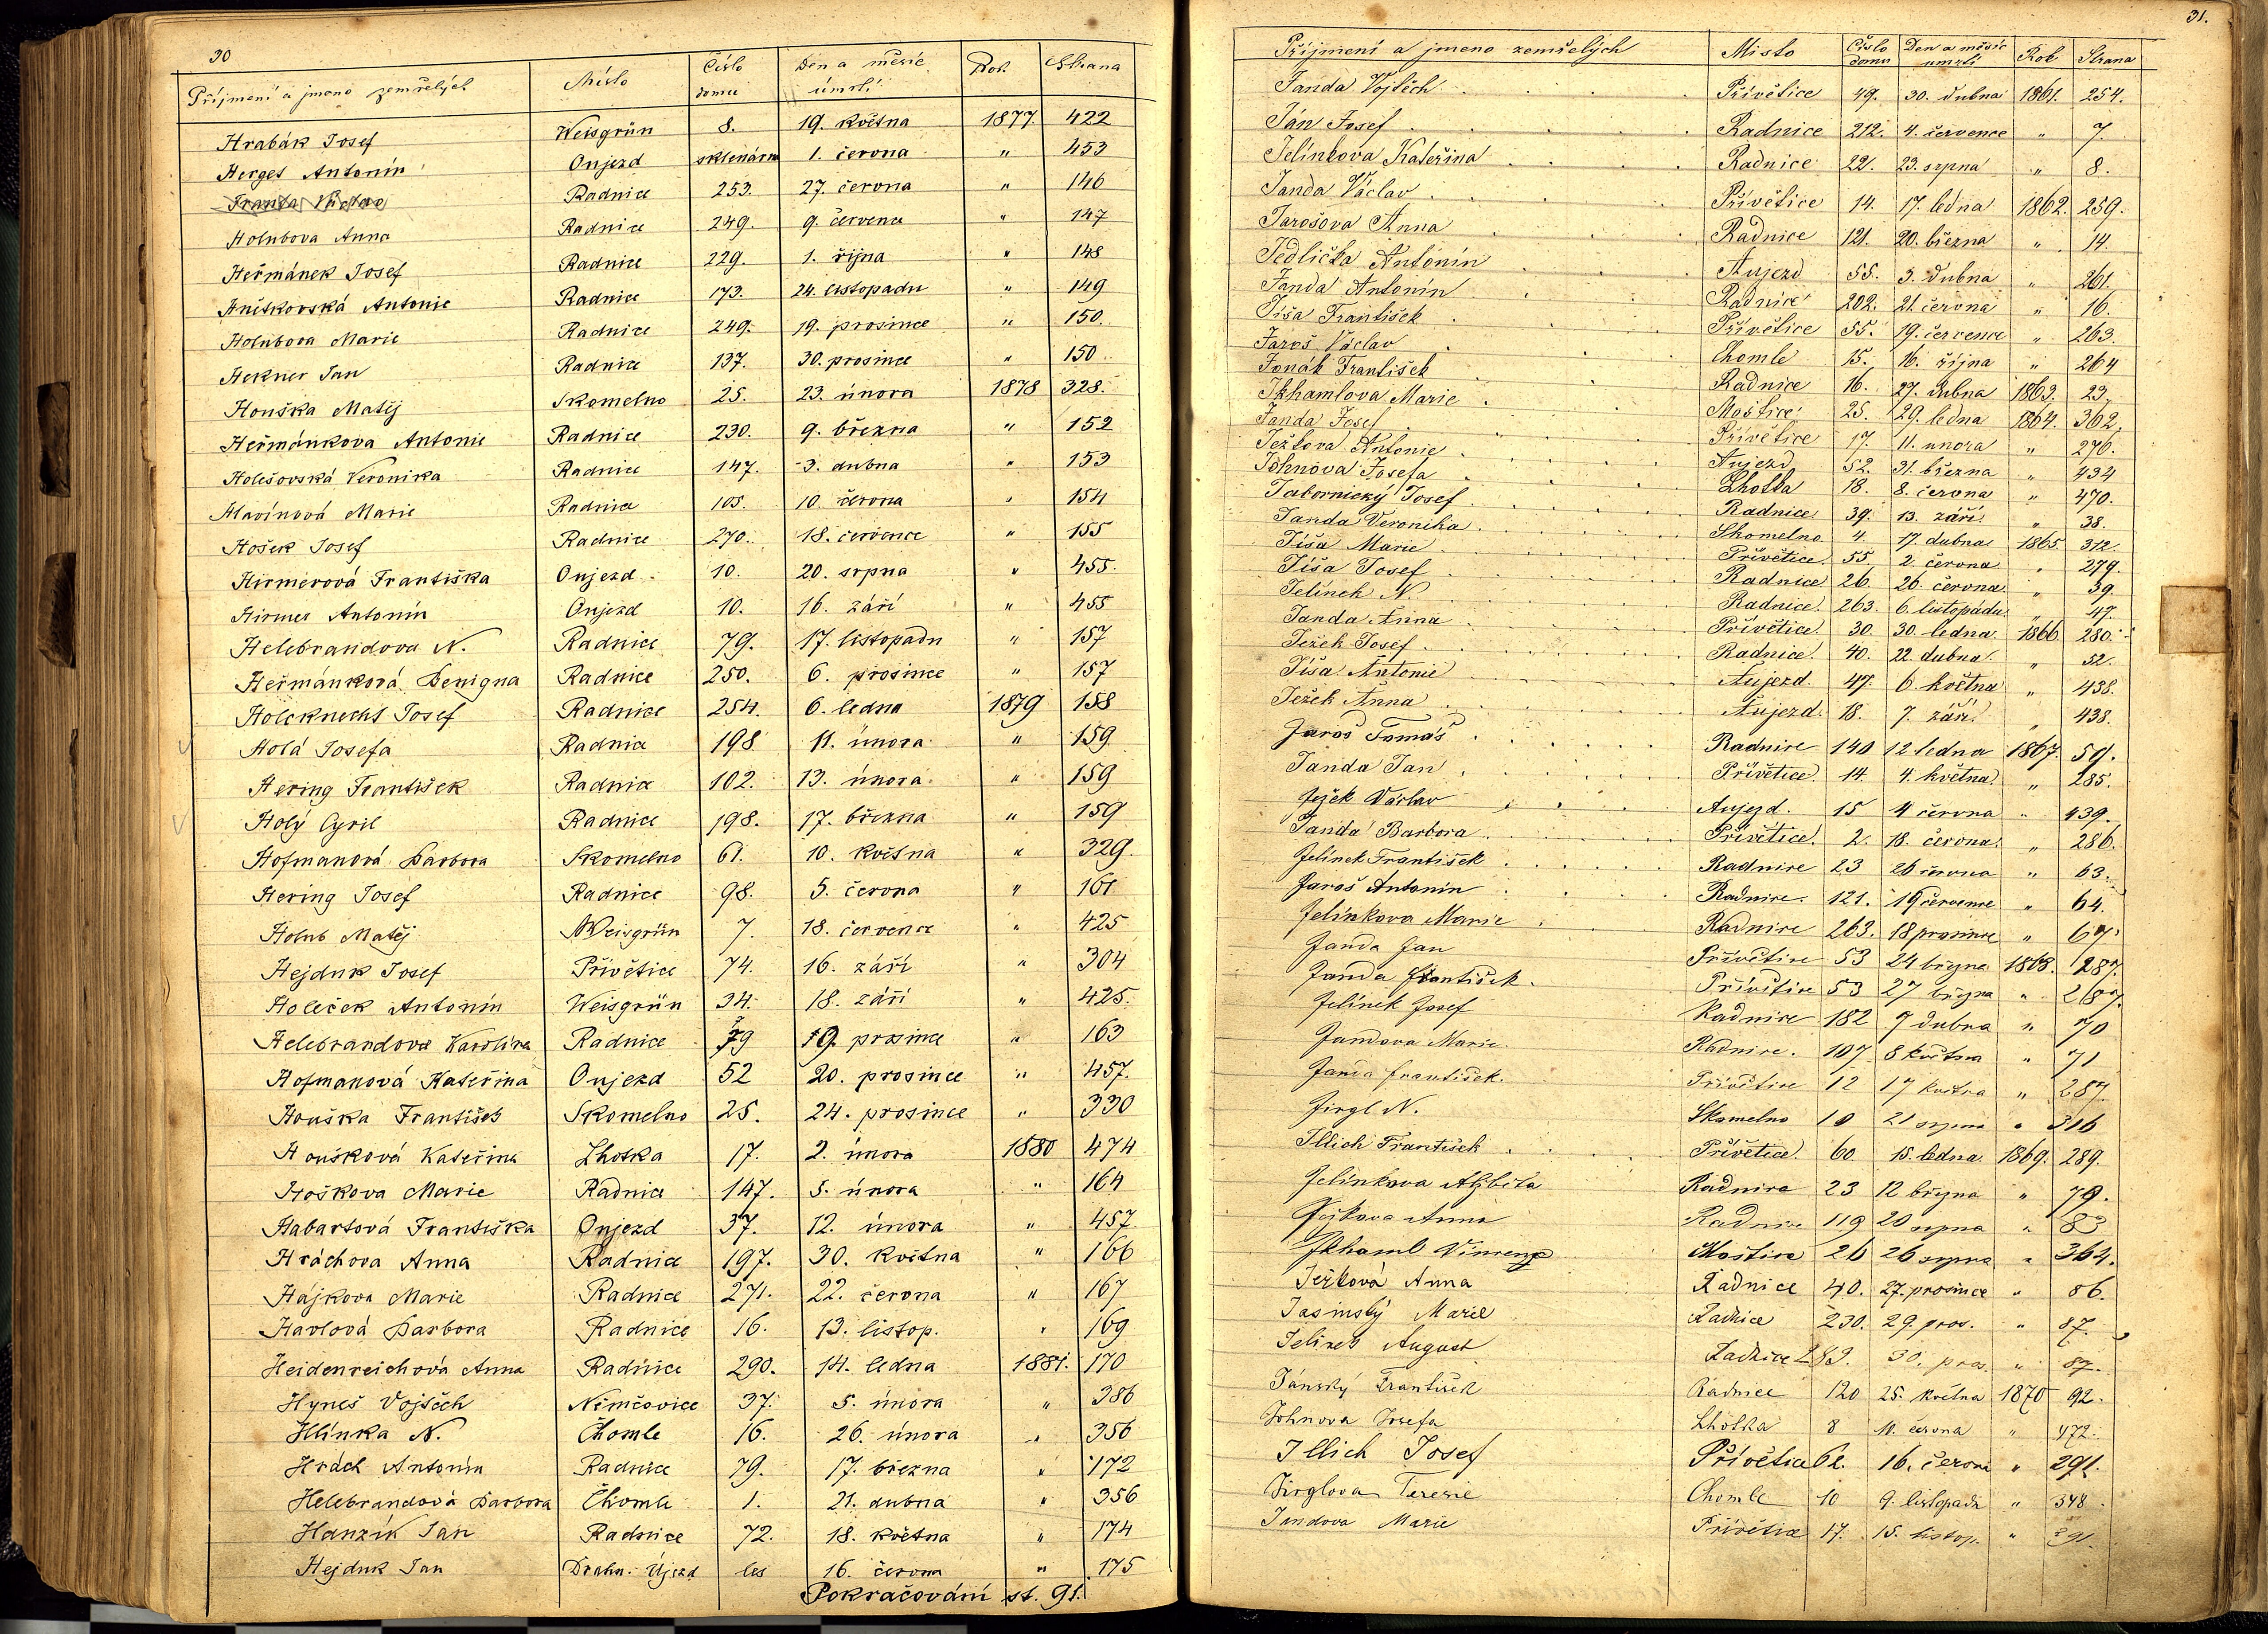 30
Příjmení a jmeno zemřelých Místo Číslo domu Den a měsíc úmrtí Rok Strana
Hrabák Josef Weisgrün 8. 19. května 1877 422
Herget Antonín Oujezd sklenárna 1. června " 453
Franta Václav Radnice 253. 27. června " 146
Holubova Anna Radnice 249. 9. července " 147
Heřmánek Josef Radnice 229. 1. října " 148
Antonie Radnice 173. 24. listopadu " 149
Holubova Marie Radnice 249. 19. prosince " 150.
Hekner Jan Radnice 137. 30. prosince " 150
Houška Matěj Skomelno 25. 23. února 1878 328.
Heřmánkova Antonie Radnice 230. 9. března " 152
Holešovská Veronika Radnice 147. 3. dubna " 153
Hlavínová Marie Radnice 105. 10. června " 154
Hošek Josef Radnice 270. 18. července " 155
Hirmerová Františka Oujezd 10. 20. srpna " 455.
Hirmer Antonín Oujezd 10. 16. září " 455
Helebrandova N. Radnice 79. 17. listopadu " 157
Heřmánková Benigna Radnice 250. 6. prosince " 157
Holcknecht Josef Radnice 254. 6. ledna 1879 158
Holá Josefa Radnice 198 11. února " 159
Hering František Radnice 102. 13. února " 159
Holý Cyril Radnice 198. 17. března " 159
Hofmanová Barbora Skomelno 61. 10. května " 329.
Hering Josef Radnice 98. 5. června " 161
Holub Matěj Weisgrün 7. 18. července " 425
Hejduk Josef Přívětice 74. 16. září " 304
Holeček Antonín Weisgrün 34. 18. září " 425.
Helebrandova Karolina Radnice 79 19. prosince " 163
Hofmanová Kateřina Oujezd 52 20. prosince " 457.
Houška František Skomelno 25. 24. prosince " 330
Houšková Kateřina Lhotka 17. 2. února 1880 474
Hoškova Marie Radnice 147. 5. února " 164
Habartová Františka Oujezd 37. 12. února " 457.
Hráchova Anna Radnice 197. 30. května " 166
Hájkova Marie Radnice 271. 22. června " 167
Havlová Barbora Radnice 16. 13. listop. " 169
Heidenreichová Anna Radnice 290. 14. ledna 1881. 170
Hyneš Vojtěch Němčovice 37. 5. února " 386
Hlínka N. Chomle 16. 26. února " 356
Hrách Antonín Radnice 79. 17. března " 172
Helebrandová Barbora Chomle 1. 21. dubna " 356
Hanzík Jan Radnice 72. 18. května " 174
Hejduk Jan Drahn. Újezd les 16. června " 175
Pokračování st. 91.
31.
Příjmení a jmeno zemřelých Misto Číslo domu Den a měsíc umrtí Rok Strana
Janda Vojtěch Přívětice 49. 30. dubna 1861. 254.
Ján Josef Radnice 212. 4. července " 7.
Jelínkova Kateřina Radnice 221. 23. srpna " 8.
Janda Václav Přívětice 14. 17. ledna 1862. 259.
Jarošova Anna Radnice 121. 20. března " 14.
Jedlička Antonín Aujezd 55. 3. dubna " 261.
Janda Antonín Radnice 202. 21. června " 16.
Jíša František Přívětice 55. 19. července " 263.
Jaroš Václav Chomle 15. 16. října " 264
Jonák František Radnice 16. 27. dubna 1863. 23.
Jkhamlova Marie Moštice 25. 29. ledna 1864. 362.
Janda Josef Přívětice 17. 11. unora " 276.
Ježkova Antonie Aujezd 52. 31. března " 434
Johnova Josefa Lhotka 18. 8. června " 470.
Jabornický Josef Radnice 39. 13. září " 38.
Janda Veronika Skomelno 4. 17. dubna 1865. 312.
Jíša Marie Přívětice 55. 2. června " 279.
Jíša Josef Radnice 26. 26. června " 39.
Jelínek N. Radnice 263. 6. listopadu " 47.
Janda Anna Přívětice 30. 30. ledna 1866 280.
Ježek Josef Radnice 40. 22. dubna " 52.
Jíša Antonie Aujezd 47. 6. května " 438.
Ježek Anna Aujezd 18. 7. září " 438.
Jaroš Tomáš Radnice 140 12 ledna 1867. 59.
Janda Jan Přívětice 14. 4. května " 285.
Ježek Václav Aujezd. 15 4 června " 439.
Janda Barbora Přívětice 2. 18. června " 286.
Jelínek František Radnice 23 26 června " 63.
Jaroš Antonín Radnice 121. 19 července " 64.
Jelínkova Marie Radnice 263. 18 prosince " 67.
Janda Jan Přívětice 53 24 března 1868. 287.
Janda František Přívětice 53 27 března " 287.
Jelínek Josef Radnice 182 7 dubna " 70
Jandova Marie Radnice. 107 8 května " 71
Janda František. Přívětice 12 17 května " 287.
Jirgl N. Skomelno 10 21 srpna " 316
Jllich František Přívětice 60. 15. ledna 1869. 289.
Jelínkova Alžběta Radnice 23 12 března " 79.
Anna Radnice 119 20 srpna " 83
Jkhaml Vincenz Moštice 26 26 srpna " 364.
Ježková Anna Radnice 40. 27. prosince " 86.
Jasinský Marie Radnice 230. 29. pros. " 87.
Jelínek August Radnice 289. 30. pros. " 87.
Jánský František Radnice 120 25. května 1870 92.
Johnova Josefa Lhotka 8 11. června " 472.
Jllich Josef Přívětice 62. 16. června " 291.
Jirglova Terezie Chomle 10 9. listopadu " 348.
Jandova Marie Přívětice 17. 15. listop. " 291.